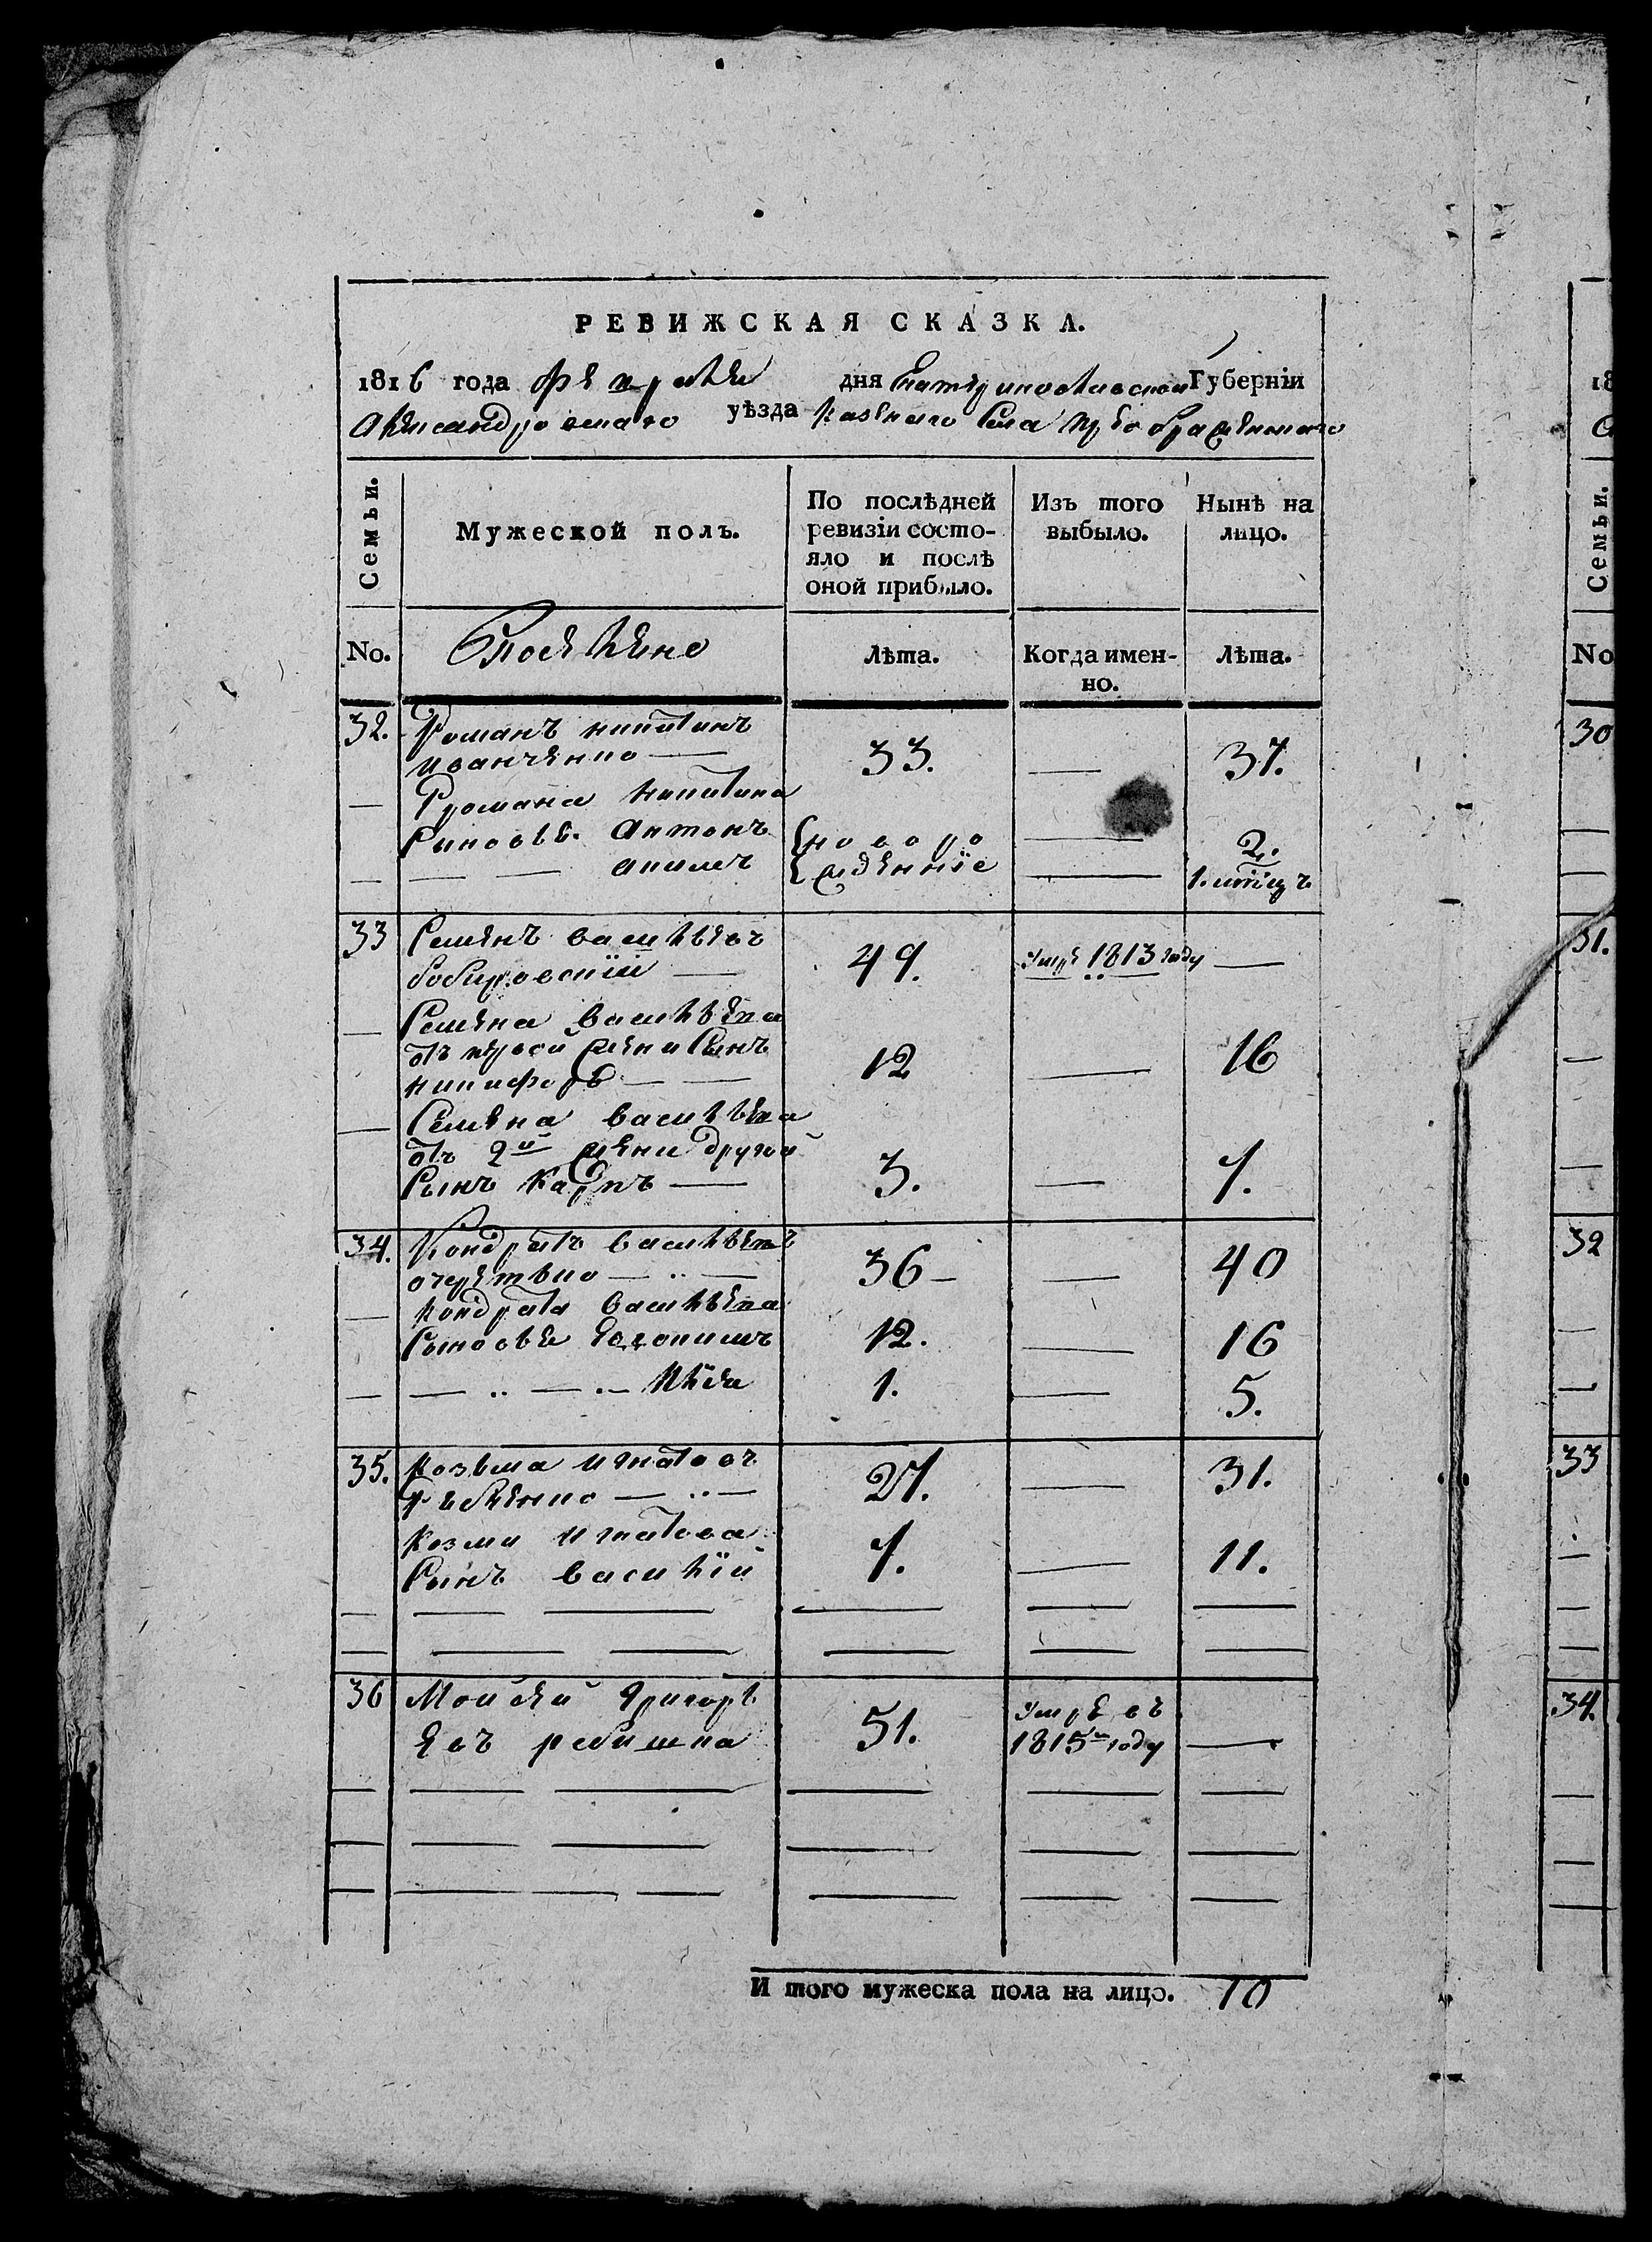 РЕВИЖСКАЯ СКАЗКА.
1816 года февраля дня Екатеринославской Губерніи
Александровскаго уѣзда казенного села Преображенского
Семьи. Мужеской полъ. По послѣдней ревизіи состо- яло и послѣ оной прибыло. Изъ того выбыло. Нынѣ на лицо.
No. Поселяне Лѣта. Когда имен- но. Лѣта.
32. Романъ никитинъ
иванченко — 33. — 37.
— Романа никитина
синовья. антонъ { новоро — 2.
— — — акимъ { жденніе — 1. мѣсяцъ
33 Семенъ васильевъ
бобировскій — 49. умре 1813 году —
— Семена васильева
отъ первой жени Сынъ
никифоръ — — 12 — 16
— Семена васильева
отъ 2й жени другой
Сынъ Карпъ — 3. — 7.
34. Кондратъ васильевъ
очеретько — .. — 36 — — 40
— кондрата васильева
Сыновья 12. — 16
— — .. — .. — Илія 1. — 5.
35. козьма игнатовъ
— .. — 27. — 31.
козми игнатова
Сынъ василій 7. — 11.
— — — — — —
— — — — — —
36 Мойсей григорь
евъ 51. умре въ 1815м году —
— — — — — —
— — — — — —
— — — — — —
И того мужеска пола на лицо. 10
18
Семьи.
No
30
31.
32
33
34.